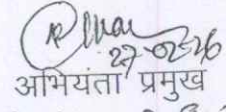 27-02-26
अभियंता प्रमुख